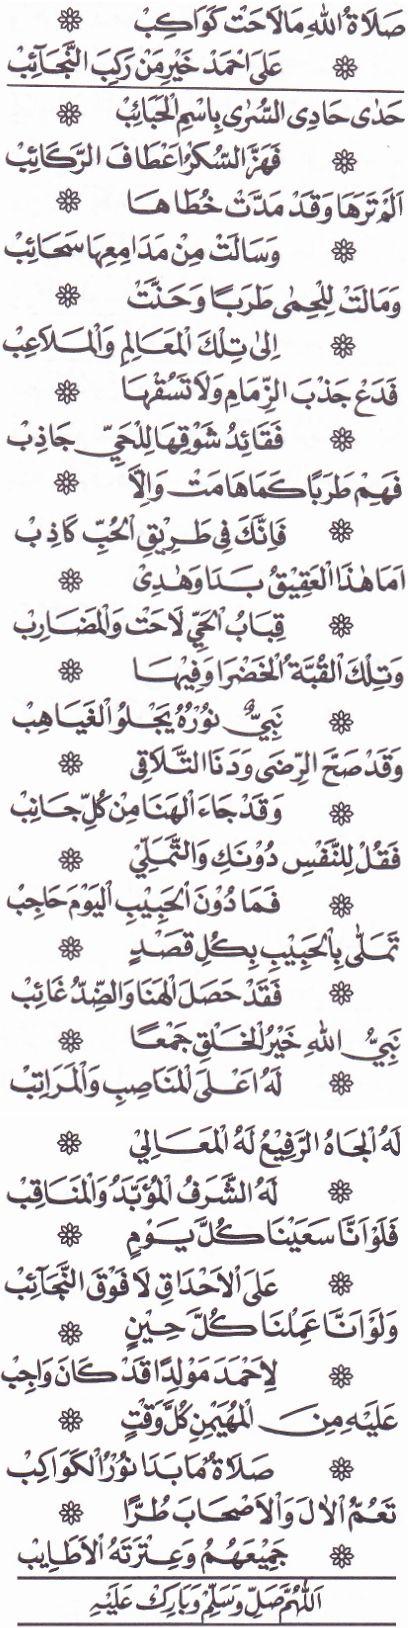 صَلَاةُ اللهِ مَا لَاحَتْ كَوَاكِبْ
عَلَى احْمَدْ خَيْرِ مَنْ رَكِبَ النَّجَآئِبْ
حَدٰى حَادِى السُّرٰى بِاسْمِ الْحَبَائِبْ
فَهَزَّ السُّكْرُ اَعْطَافَ الرَّكَائِبْ
اَلَمْ تَرَهَا وَقَدْ مَدَّتْ خُطَاهَا
وَسَالَتْ مِنْ مَدَامِعِهَا سَحَائِبْ
وَمَالَتْ لِلْحِمٰى طَرَبًا وَحَنَّتْ
اِلٰى تِلْكَ الْمَعَالِمِ وَالْمَلَاعِبْ
فَدَعْ جَذْبَ الزِّمَامِ وَلَا تَسُقْهَا
فَقَائِدُ شَوْقِهَا لِلْحَيِّ جَاذِبْ
فَهِمْ طَرَبًا كَمَا هَامَتْ وَاِلَّا
فَاِنَّكَ فِى طَرِيْقِ الْحُبِّ كَاذِبْ
اَمَا هٰذَا الْعَقِيْقُ بَدَا وَهٰذِىْ
قِبَابُ الْحَيِّ لَاحَتْ وَالْمَضَارِبْ
وَتِلْكَ الْقُبَّةُ الْخَضْرَا وَفِيْهَا
نَبِيٌّ نُوْرُهُ يَجْلُو الْغَيَاهِبْ
وَقَدْ صَحَّ الرِّضٰى وَدَنَا التَّلَاقِى
وَقَدْ جَاءَ الْهَنَا مِنْ كُلِّ جَانِبْ
فَقُلْ لِلنَّفْسِ دُوْنَكِ وَالتَّمَلِّيْ
فَمَا دُوْنَ الْحَبِيْبِ الْيَوْمَ حَاجِبْ
تَمَلّٰى بِالْحَبِيْبِ بِكُلِّ قَصْدٍ
فَقَدْ حَصَلَ الْهَنَا وَالضِّدُّ غَائِبْ
نَبِيُّ اللهِ خَيْرُ الْخَلْقِ جَمْعًا
لَهُ اَعْلَى الْمَنَاصِبِ وَالْمَرَاتِبْ
لَهُ الْجَاهُ الرَّفِيْعُ لَهُ الْمَعَالِيْ
لَهُ الشَّرَفُ الْمُؤَبَّدُ وَالْمَنَاقِبْ
فَلَوْ اَنَّا سَعَيْنَا كُلَّ يَوْمٍ
عَلَى الْاَحْدَاقِ لَا فَوْقَ النَّجَآئِبْ
وَلَوْ اَنَّا عَمِلْنَا كُلَّ حِيْنٍ
لِاَحْمَدَ مَوْلِدًا قَدْ كَانَ وَاجِبْ
عَلَيْهِ مِنَ الْمُهَيْمِنِ كُلَّ وَقْتٍ
صَلَاةٌ مَا بَدَا نُوْرُ الْكَوَاكِبْ
تَعُمُّ الْاٰلَ وَالْاَصْحَابَ طُرًّا
جَمِيْعَهُمُ وَعِتْرَتَهُ الْاَطَايِبْ
اَللّٰهُمَّ صَلِّ وَسَلِّمْ وَبَارِكْ عَلَيْهِ